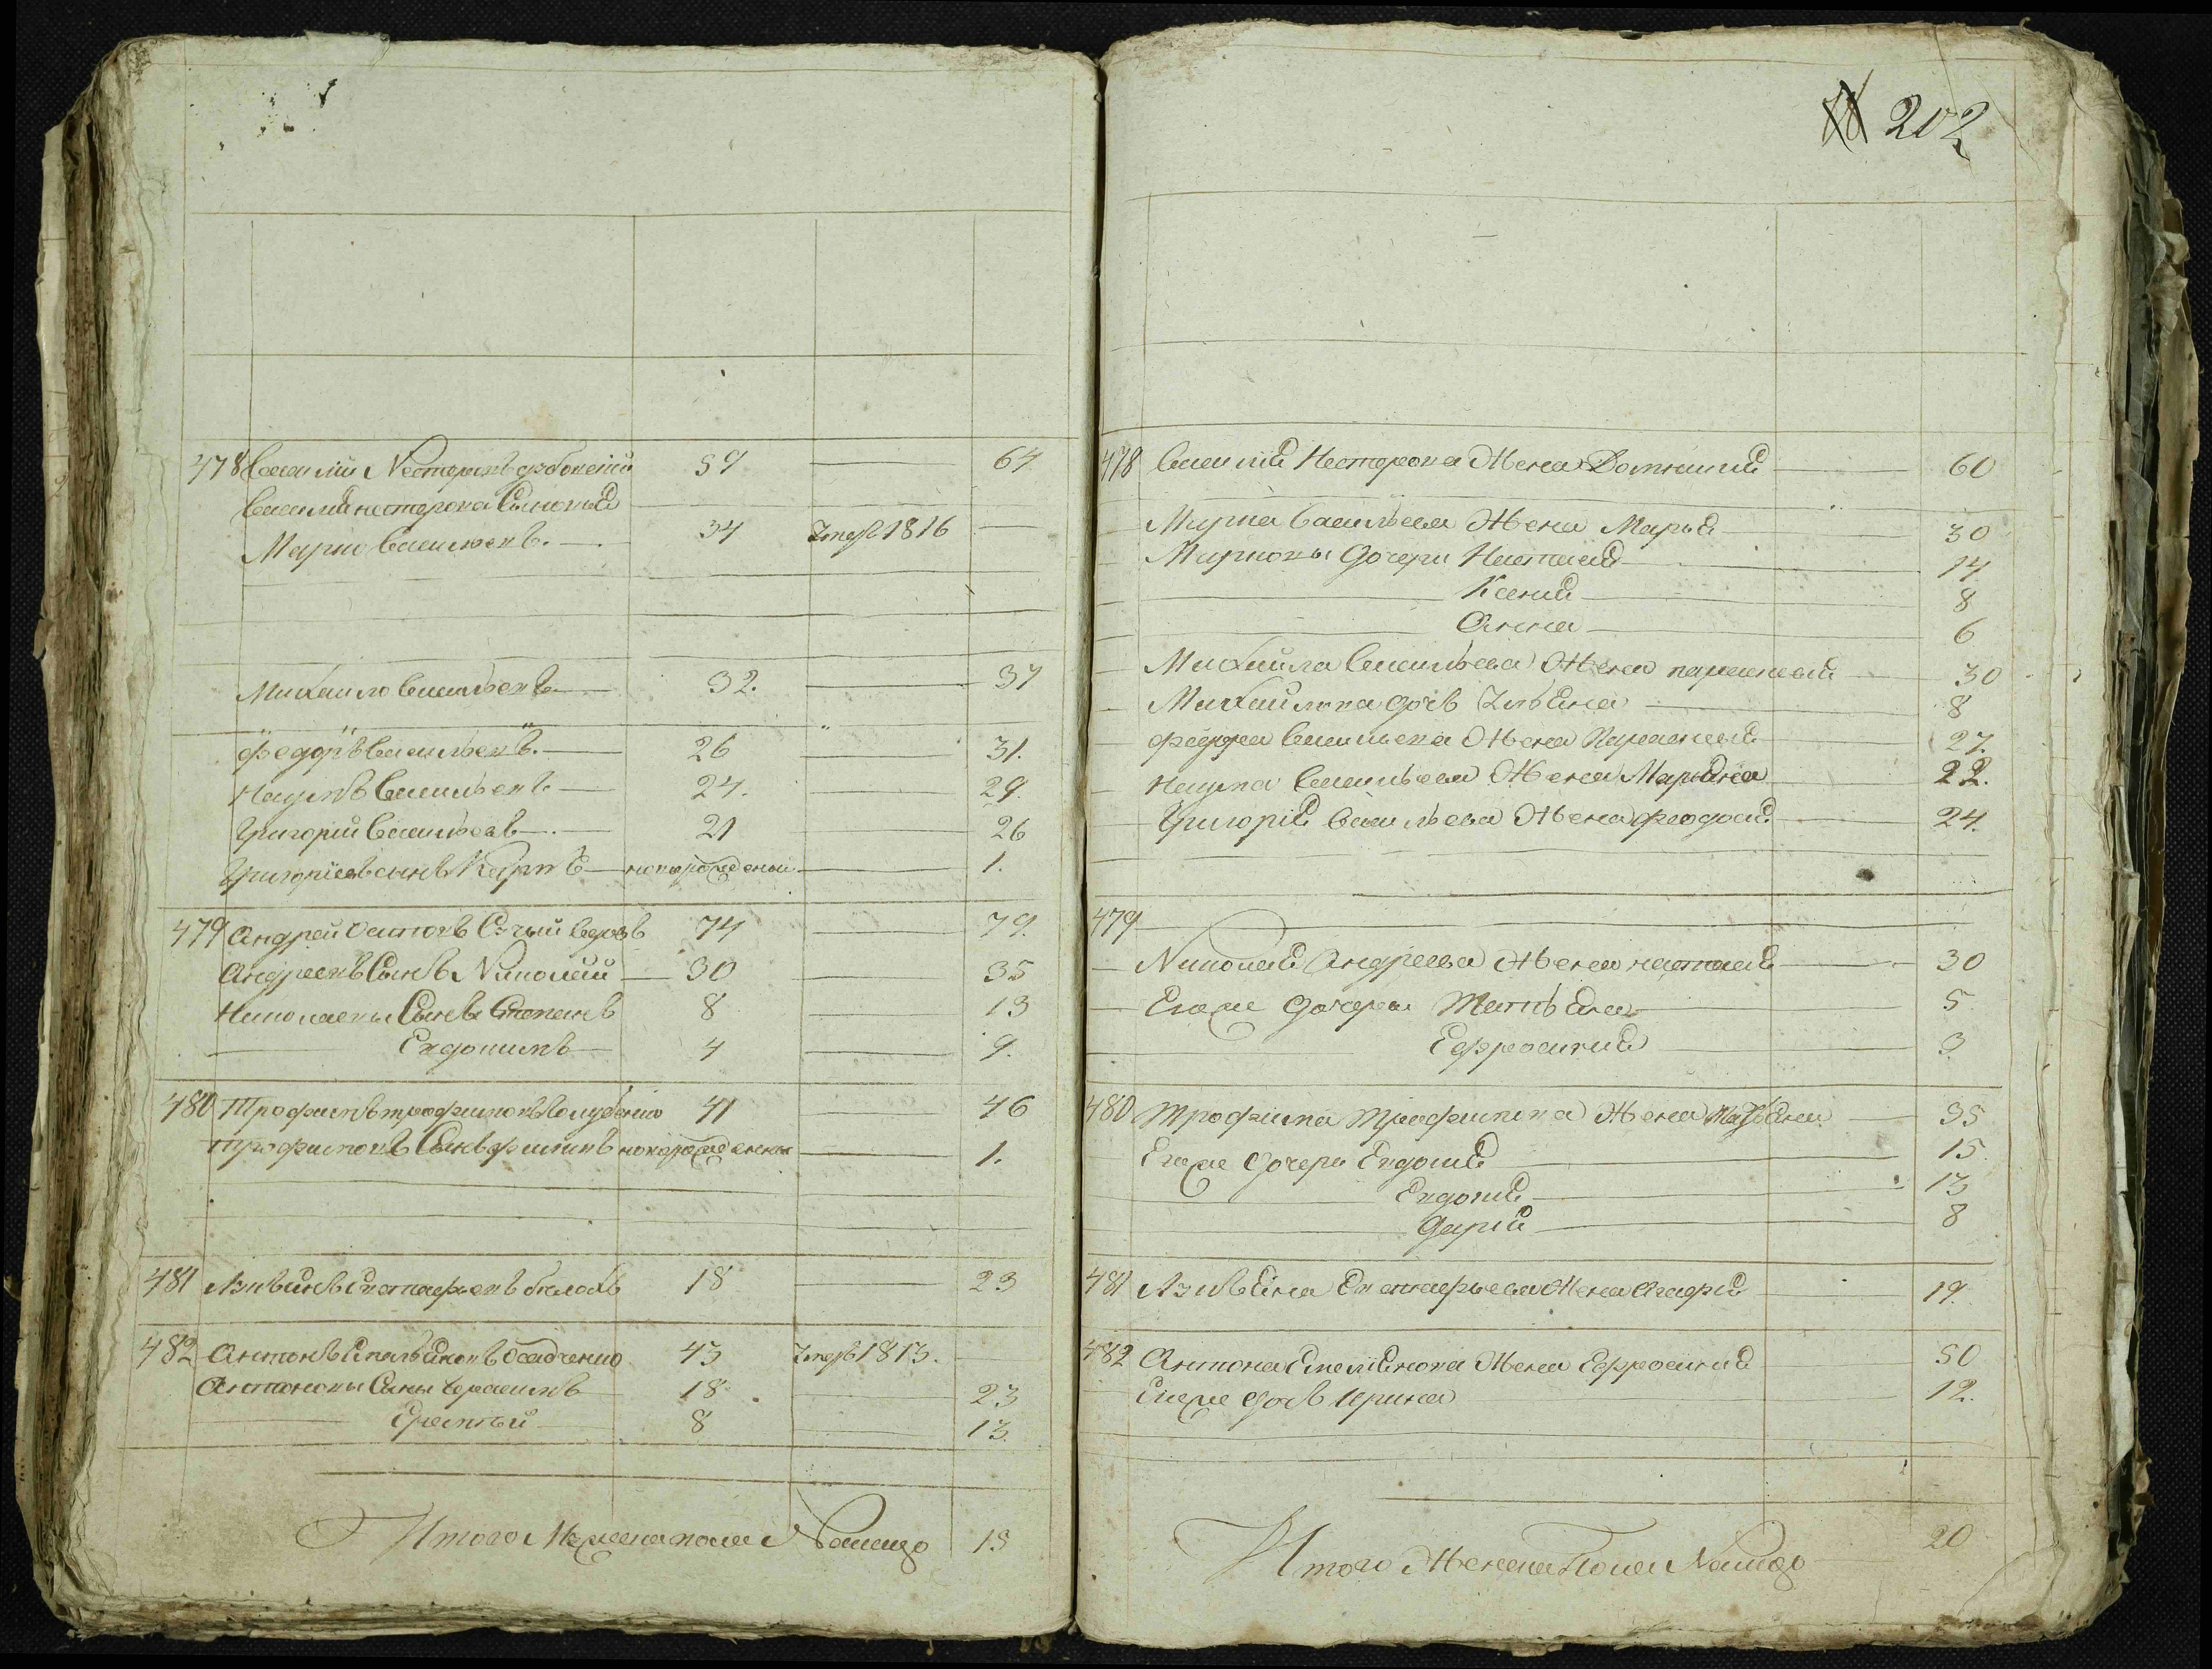 202
478 Василий Нестеровъ 59 — 64
Василия нестерова Сыновья
Миронъ Васильевъ. — 34 Умеръ 1816 —
Михаило Васильевъ — 32. — 37
Федоръ Васильевъ. — 26 — 31.
Наумъ Васильевъ — 24. — 29.
Григорий Васильевъ — 21 — 26
Григорьевъ сынъ Карпъ — новорожденой — 1.
479 Андрей Осиповъ 74 — 79.
Андреевъ Сынъ Николай — 30 — 35
Николаевы Сынъ Степанъ 8 — 13
— Евдокимъ — 4 — 9.
480 Трофимъ трофимовъ 41 — 46
трофимовъ Сынъ Фишипъ новорожденны — 1.
481 Евстафьевъ 18 — 23
482 Антонъ Емельяновъ Осадченко 43 Умеръ 1813. —
Антоновы Сыны Герасимъ 18 — 23
— Ерастъ 8 — 13.
Итого Мужеска пола Налицо 13
478 Василия Нестерова Жена Домникия — 60
Мирна Васильева Жена Марья — 30
Мироновы Дочери Настасия — 14
— Ксения — 8
— Анна — 6
Михайла Васильева Жена парасковия — 30
Михайлова дочь Ульяна — 8
Федора Васильева Жена Парасковия — 27.
Наума Васильева Жена Марьяна — 22.
Григория Васильева Жена феодосия — 24.
479 —
Николая Андреева Жена настасия — 30
Егоже Дочери Татьяна — 5
— Ефросиния — 3
480 Трофима Трофимова Жена — 35
Егоже дочери Евдокия — 15.
— Евдокия — 13
— Дария — 8
481 Евстафьева Жена Агафия — 19.
482 Антона Емелиянова Жена Ефросиния 50
Егоже дочь Ирина — 12.
Итого Женска Пола Налицо 20